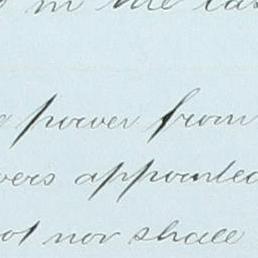 in the las
power from
vers appointed
not nor shall